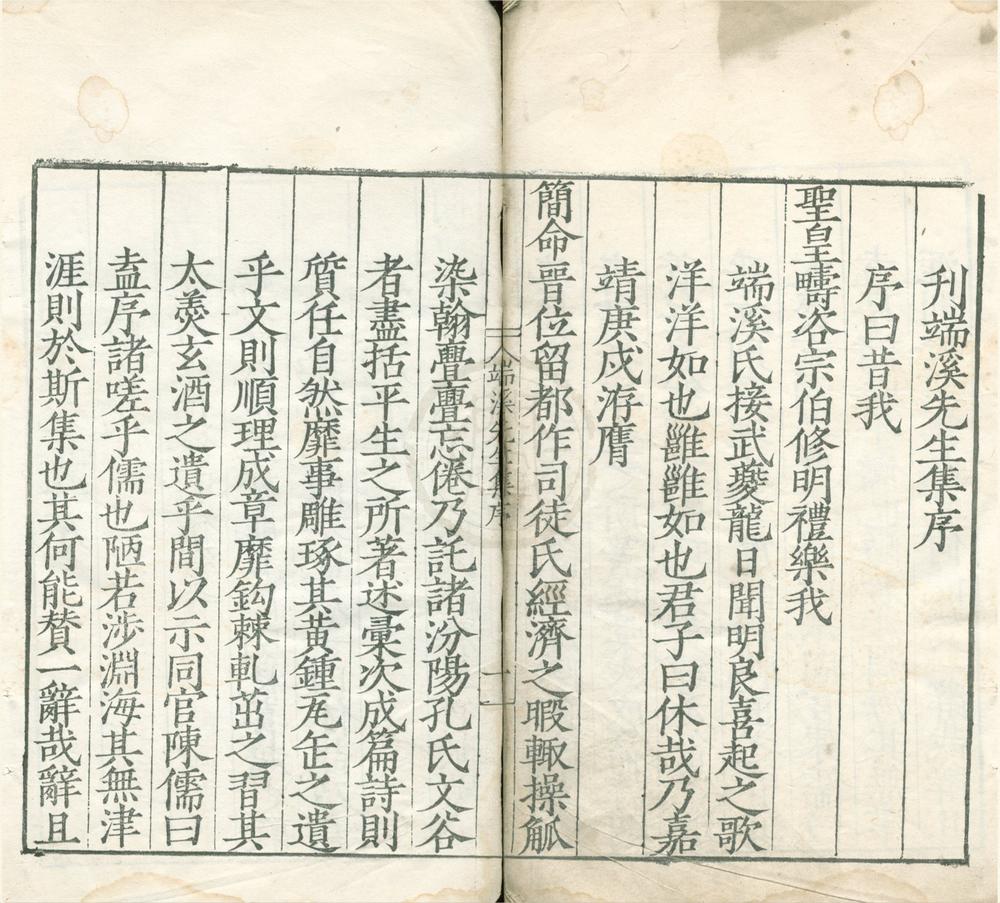 刋端溪先生集序
序曰昔我
聖皇疇咨宗伯修明禮樂我
端溪氏接武夔龍日聞明良喜起之歌
洋洋如也雝雝如也君子曰休哉乃嘉
靖庚戍洊膺
簡命晉位留都作司徒氏經濟之暇輙操觚
八端溪先生集序 一
染翰亹亹忘倦乃託諸汾陽孔氏文谷
者盡括平生之所著述彙次成篇詩則
質任自然靡事雕琢其黃鍾瓦缶之遺
乎文則順理成章靡鈎棘軋茁之習其
太羮玄酒之遺乎間以示同官陳儒曰
盍序諸嗟乎儒也陋若涉淵海其無津
涯則於斯集也其何能賛一辭哉辭且